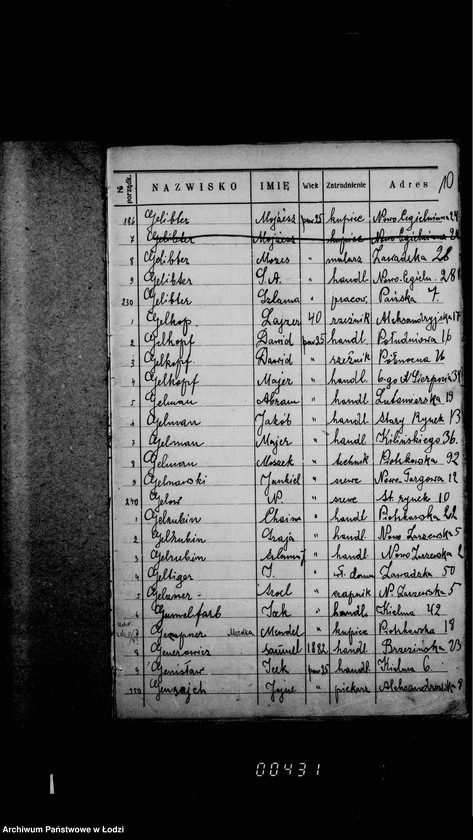 10
№ porządk. NAZWISKO IMIĘ Wiek Zatrudnienie Adres
186 Gelibter Mojżesz pow 25 kupiec Nowo Cegielniana 24
7 Gelibter Mojżesz " kupiec Nowo Cegielniana 24
8 Gelibter Mozes " malarz Zawadzka 28
9 Gelibter S.A. " handl. Nowo. Cegieln. 28
230 Gelibter Szlama " pracow. Pańska 7.
1 Gelkop. Lajzer 40 rzeźnik Aleksandryjska 17
2 Gelkopf Dawid pow 25 handl. Południowa 16
3 Gelkopf Dawid " rzeźnik Północna 16
4 Gelkopf Majer " handl. 6-go Sierpnia
5 Gelman Abram " handl Lutomierska 19
6 Gelman Jakób " handl Stary Rynek 13
7 Gelman Majer " handl Kilińskiego 36.
8 Gelman Moszek " technik Piotrkowska 92
9 Gelnawski Jankiel " szewc Nowo-Targowa 12
240 Gelow N. " szewc St. rynek 10
1 Gelrubin Chaim " handl Piotrkowska 22
2 Gelrubin Szaja " handl. Nowo Zarzewska 5
3 Gelrubin " handl. Nowo Zarzewska
4 Geltiger J. " wł. domu Zawadzka 50
5 Gelzner Srol " czapnik N. Zarzewska 5
6 Gumelfarb Icek " handl. Kielma 42
7 Mendel " kupiec Piotrkowska 18
8 Generowicz Samuel 1882 handl Brzezińska 23
9 Genisław Icek pow 25 handl Kielma 6.
250 Genzajch " piekarz Aleksandrowska 9
00431
Archiwum Państwowe w Łodzi